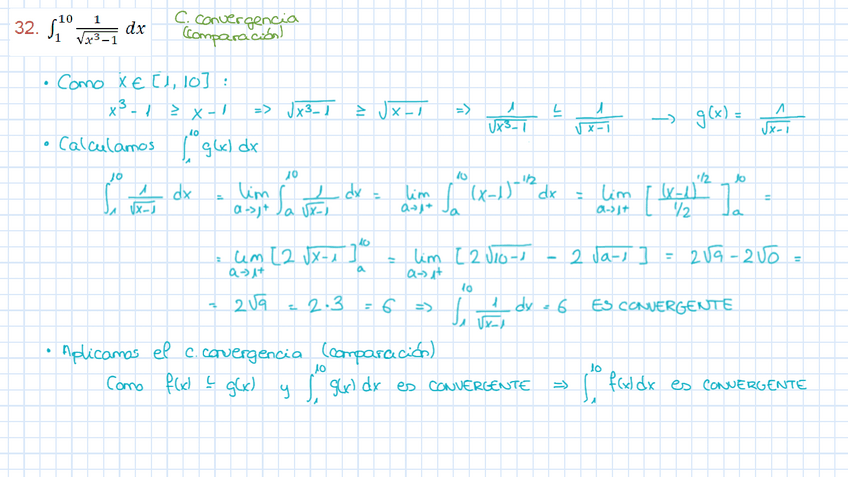 32. ∫₁¹⁰ 1/√(x³−1) dx C. convergencia (comparación)
• Como x ∈ [1, 10] :
x³ - 1 ≥ x - 1 => √(x³-1) ≥ √(x-1) => 1/√(x³-1) ≤ 1/√(x-1) → g(x) = 1/√(x-1)
• Calculamos ∫₁¹⁰ g(x) dx
∫₁¹⁰ 1/√(x-1) dx = lim a→1⁺ ∫ₐ¹⁰ 1/√(x-1) dx = lim a→1⁺ ∫ₐ¹⁰ (x-1)^(-1/2) dx = lim a→1⁺ [(x-1)^(1/2) / (1/2)]ₐ¹⁰ =
= lim a→1⁺ [2 √(x-1)]ₐ¹⁰ = lim a→1⁺ [2√(10-1) - 2√(a-1)] = 2√9 - 2√0 =
= 2√9 = 2·3 = 6 => ∫₁¹⁰ 1/√(x-1) dx = 6 ES CONVERGENTE
• Aplicamos el c. convergencia (comparación)
Como f(x) ≤ g(x) y ∫₁¹⁰ g(x) dx es CONVERGENTE => ∫₁¹⁰ f(x) dx es CONVERGENTE